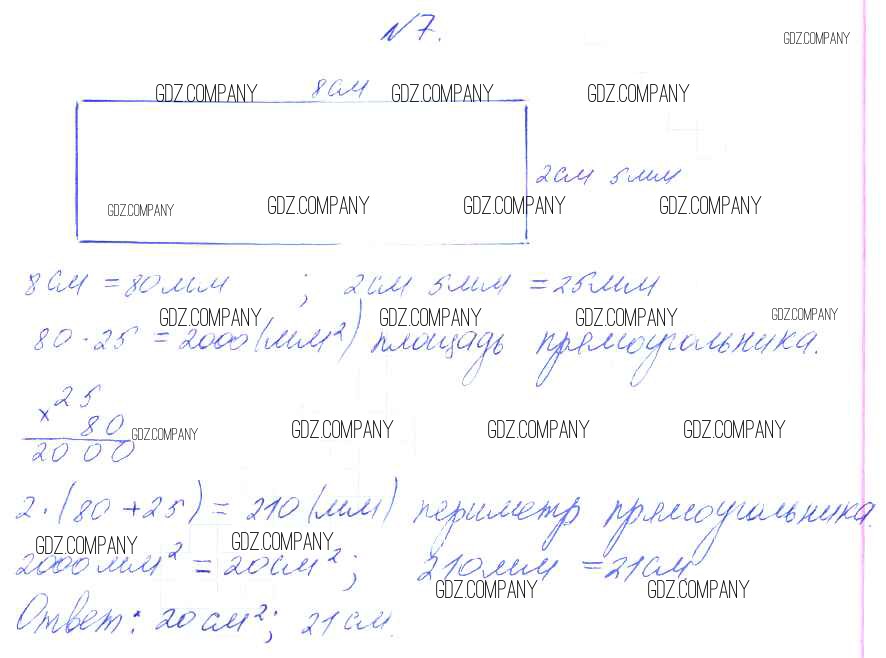 N7.
GDZ.COMPANY
GDZ.COMPANY 8см GDZ.COMPANY GDZ.COMPANY
2см 5мм
GDZ.COMPANY GDZ.COMPANY GDZ.COMPANY GDZ.COMPANY
8см = 80мм ; 2см 5мм = 25мм
GDZ.COMPANY GDZ.COMPANY GDZ.COMPANY GDZ.COMPANY
80 · 25 = 2000 (мм²) площадь прямоугольника.
× 25
80
GDZ.COMPANY GDZ.COMPANY GDZ.COMPANY GDZ.COMPANY
2000
2·(80+25) = 210 (мм) периметр прямоугольника.
GDZ.COMPANY GDZ.COMPANY
2000мм² = 20см²; 210мм = 21см
GDZ.COMPANY GDZ.COMPANY
Ответ: 20см²; 21см.